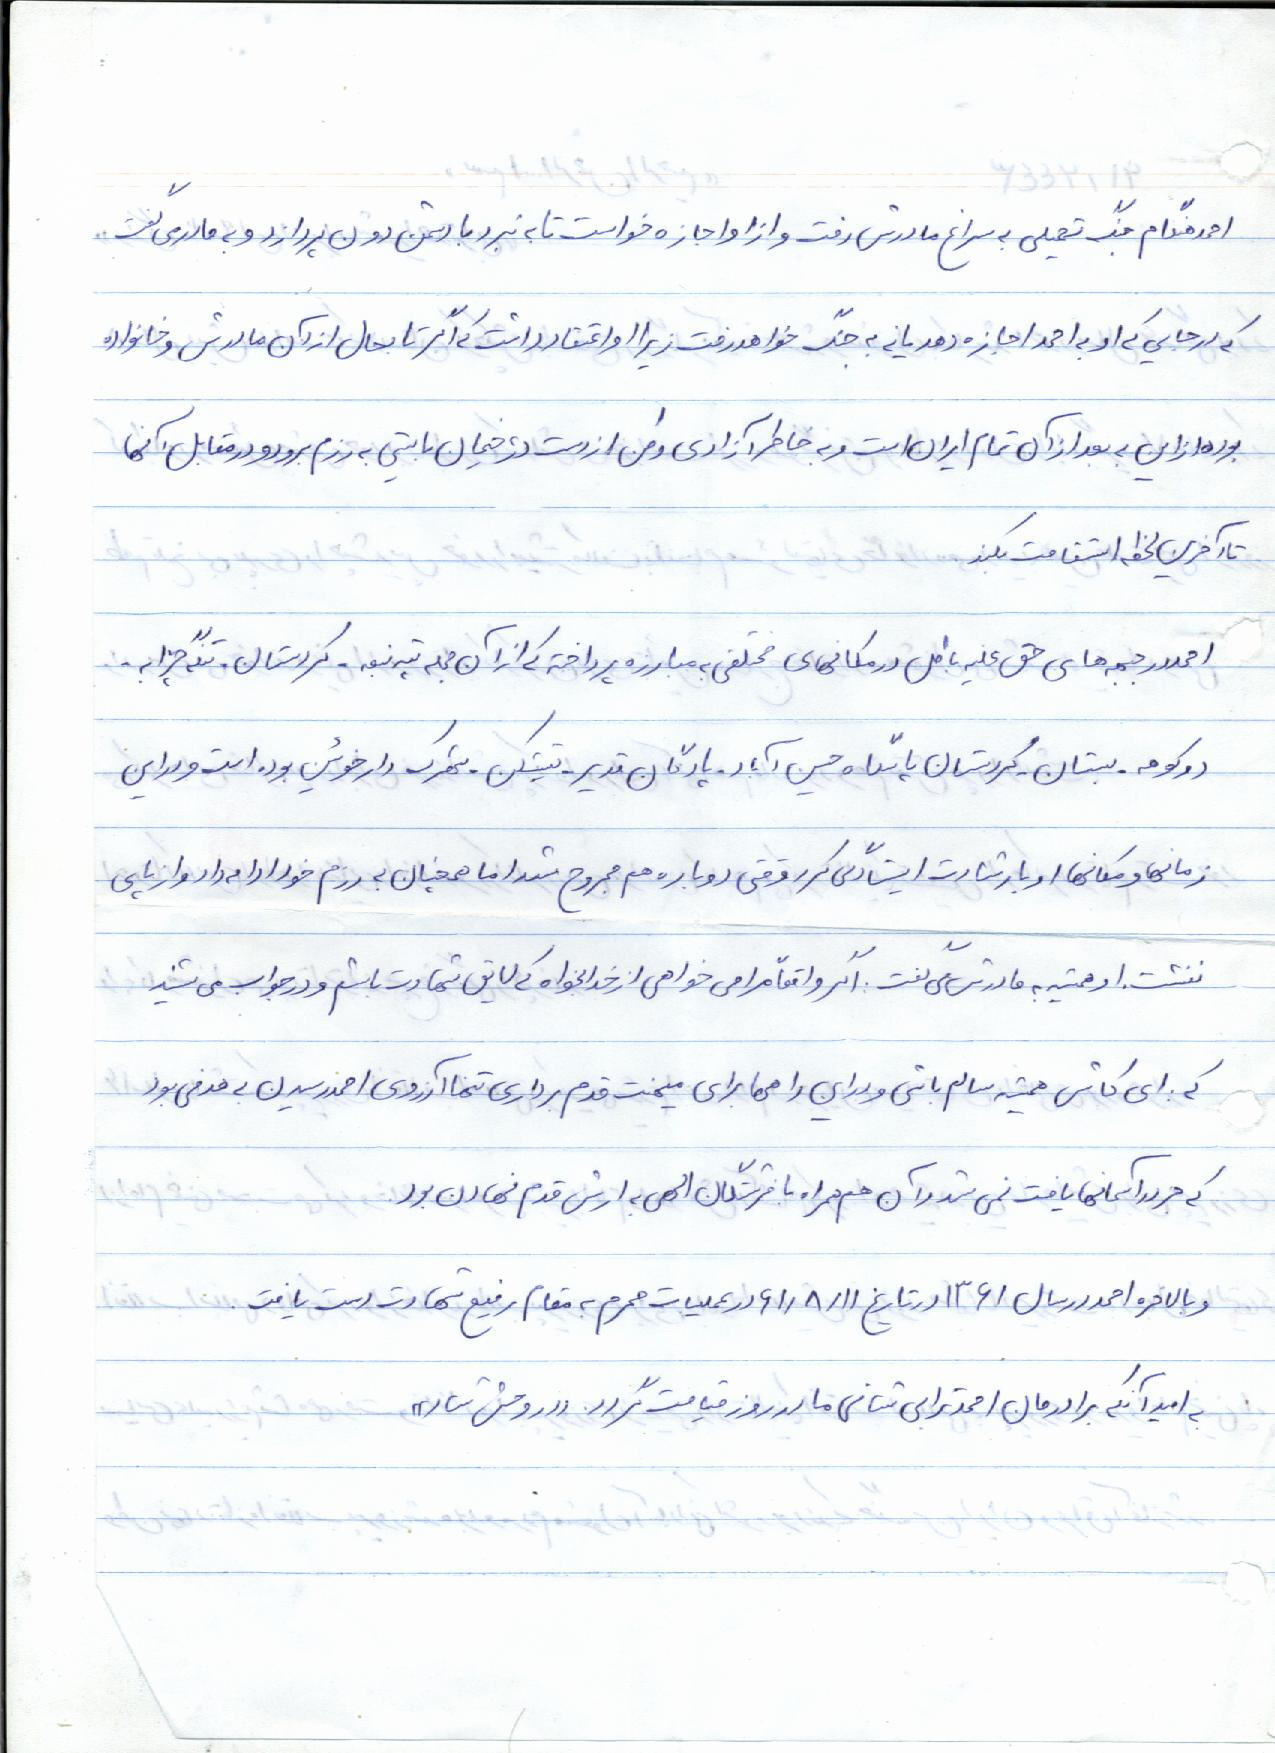 احمد هنگام جنگ تحمیلی به سراغ مادرش رفت و از او اجازه خواست تا به نبرد با دشمن دون بپردازد و به مادر می گفت
که در جایی که او به احمد اجازه دهد یا نه به جنگ خواهد رفت زیرا او اعتقاد داشت که اگر تا بحال از آن مادرش و خانواده
بوده از این به بعد از آن تمام ایران است و به خاطر آزادی وطن از دست دژخیمان بایستی به رزم برود و در مقابل آنها
تا آخرین لحظه استقامت بکند
احمد در جبهه های حق علیه باطل در مکانهای مختلفی به مبارزه پرداخته که از آن جمله تپه نبعه - کردستان - تنگه چزابه -
دوکوهه - بستان - کردستان پایگاه حسین آباد - پادگان قدیر - تیشکن - شهرک دارخوئین بوده است و در این
زمانها و مکانها او با رشادت ایستادگی کرد وقتی دوباره هم مجروح شد اما همچنان به رزم خود ادامه داد و از پای
ننشست. او همیشه به مادرش می گفت: اگر واقعاً مرا می خواهی از خدا بخواه که لایق شهادت باشم و در جواب می شنید
که: ای کاش همیشه سالم باشی و در این راهها برای میهنت قدم برداری تنها آرزوی احمد رسیدن به هدفی بود
که جز در آسمانها یافت نمی شد و آن هم همراه با فرشتگان الهی به ارش قدم نهادن بود.
و بالاخره احمد در سال ۱۳۶۱ در تاریخ ۶۱/۸/۱۱ در عملیات محرم به مقام رفیع شهادت دست یافت.
به امید آنکه برادرمان احمد ترابی شافی ما در روز قیامت گردد. «روحش شاد»